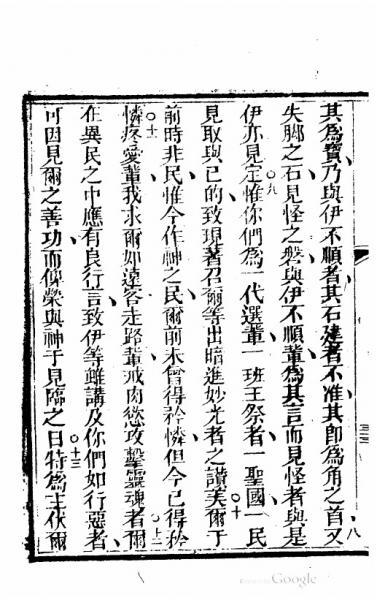 其為寶乃與伊不順者其石建者不准其即為角之首又
失脚之石見怪之磐與伊不順輩為其言而見怪者與是
伊亦見定惟你們為一代選輩一班王祭者一聖國一民
○九
見取與己的致現著召爾等出暗進妙光者之讚美爾于
○十
前時非民惟今作神之民爾前未曾得矜憐但今已得矜
憐疼愛輩我求爾如遠客走路輩戒肉慾攻擊靈魂者爾
○十一
○十二
在異民之中應有良行言致伊等雖講及你們如行惡者
可因見爾之善功而俾榮與神于見臨之日特為主伏爾
○十三
八
Google